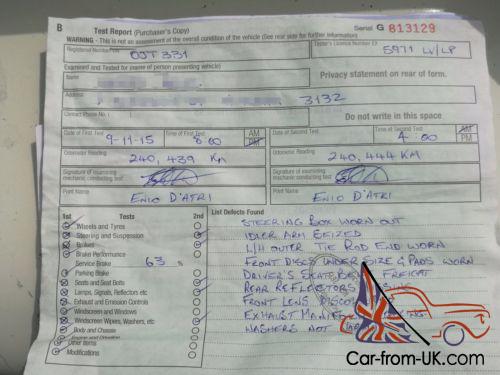 B
Test Report (Purchaser's Copy)
Serial G 813129
WARNING - This is not an assessment of the overall condition of the vehicle (See rear side for further information)
Registered Number
OJT 331
Tester's Licence Number
5971 LV/LP
Examined and Tested for (name of person presenting vehicle)
Name
Privacy statement on rear of form.
Address
3132
Contact Phone No.
Do not write in this space
Date of First Test
9-11-15
Time of First Test
8.00
AM
PM
Date of Second Test
Time of Second Test
4.00
AM
PM
Odometer Reading
240,439 KM
Odometer Reading
240,444 KM
Signature of examining mechanic conducting test
Signature of examining mechanic conducting test
Print Name
ENIO D'ATRI
Print Name
ENIO D'ATRI
1st Tests 2nd
List Defects Found
Wheels and Tyres
Steering and Suspension
Brakes
Brake Performance
Service Brake 63 %
Parking Brake
Seats and Seat Belts
Lamps, Signals, Reflectors etc
Exhaust and Emission Controls
Windscreen and Windows
Windscreen Wipers, Washers, etc
Body and Chassis
Engine and Driveline
Other Items
Modifications
STEERING BOX WORN OUT
IDLER ARM SEIZED
L/H OUTER TIE ROD END WORN
FRONT DISCS UNDER SIZE & PADS WORN
DRIVER'S SEAT BELT
REAR REFLECTORS
FRONT LENS
EXHAUST
WASHERS NOT
Car-from-UK.com